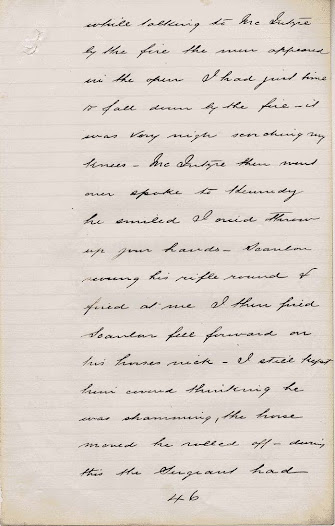 while talking to Mc Intyre
by the fire the men appeared
in the open I had just time
to fall down by the fire - it
was very nigh scorching my
knees - Mc Intyre then went
over spoke to Kennedy
he smiled I cried throw
up your hands - Scanlan
swung his rifle round &
fired at me I then fired
Scanlan fell forward on
his horses neck - I still kept
him covered thinking he
was shamming, the horse
moved he rolled off - during
this the Sergeant had
46